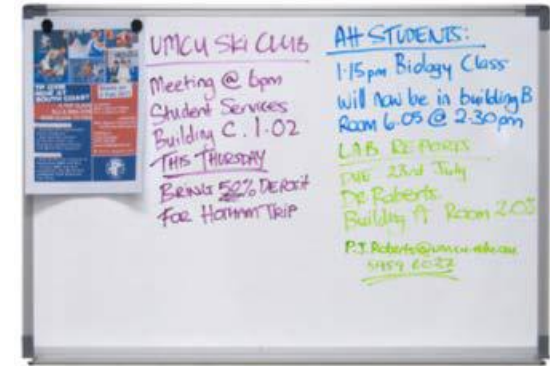 UMCU Ski CLUB
Meeting @ 6pm
Student Services
Building C. 1.02
THIS THURSDAY
BRING 50% DEPOSIT
FOR HOTHAM TRIP
AH STUDENTS:
1.15pm Biology Class
will now be in building B
Room 6.05 @ 2.30pm
LAB REPORTS
DUE 23rd July
Dr Roberts
Building A Room 2.03
P.J.Roberts@umcu.edu.au
5959